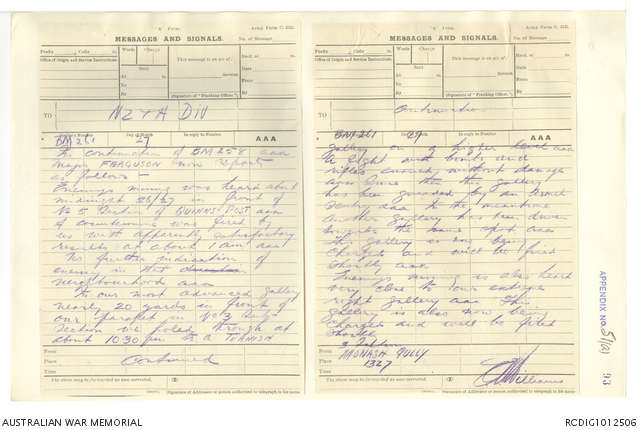 "A" Form. Army Form C. 2121.
MESSAGES AND SIGNALS. No. of Message
Prefix Code m. Words Charge
Office of Origin and Service Instructions.
Sent
At m.
To
By
This message is on a/c of:
Service.
(Signature of "Franking Officer.")
Recd. at m.
Date
From
By
TO NZ & A DIV
Sender's Number Day of Month In reply to Number AAA
BM 261 27
In continuation of BM 258 aaa
Major FERGUSON now reports
as follows -
Enemys mining was heard about
midnight 26/27 in front of
No 3 Section of QUINNS POST aaa
A countermine was fired by
us with apparently satisfactory
results at about 1 am aaa
No further indication of
enemy in that
neighbourhood aaa
In our most advanced gallery
nearly 20 yards in front of
our parapet in No 3 Sub-
section we holed through at
about 10.30 pm to a TURKISH
Continued
From
Place
Time
The above may be forwarded as now corrected. (Z)
Signature of Addressor or person authorised to telegraph in his name
"A" Form. Army Form C. 2121.
MESSAGES AND SIGNALS. No. of Message
Prefix Code m. Words Charge
Office of Origin and Service Instructions.
Sent
At m.
To
By
This message is on a/c of:
Service.
(Signature of "Franking Officer.")
Recd. at m.
Date
From
By
TO Continuation
Sender's Number Day of Month In reply to Number AAA
BM 261 27
gallery on a higher level aaa
A fight with bombs and
rifles ensued without damage
aaa Since then the gallery
has been guarded by an armed
sentry aaa In the meantime
another gallery has been driven
towards the same spot aaa
This gallery is now being
charged and will be fired
shortly aaa
Enemys mining is also heard
very close to our extreme
right gallery aaa This
gallery is also now being
charged and will be fired
shortly
From
Place MONASH GULLY
Time 1327
The above may be forwarded as now corrected. (Z)
Williams
Signature of Addressor or person authorised to telegraph in his name
APPENDIX No. 51(a)
93
AUSTRALIAN WAR MEMORIAL RCDIG1012506